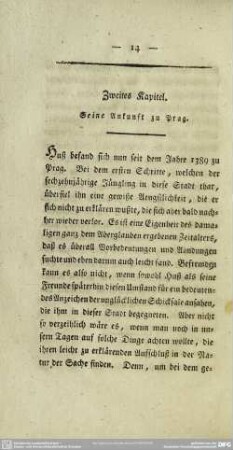 — 14 —
Zweites Kapitel.
Seine Ankunft zu Prag.
Huß befand sich nun seit dem Jahre 1389 zu
Prag. Bei dem ersten Schritte, welchen der
sechzehnjährige Jüngling in diese Stadt that,
überfiel ihn eine gewiße Aengstlichkeit, die er
sich nicht zu erklären wußte, die sich aber bald nach-
her wieder verlor. Es ist eine Eigenheit des dama-
ligen ganz dem Aberglauben ergebenen Zeitalters,
daß es überall Vorbedeutungen und Ahndungen
suchte und eben darum auch leicht fand. Befremden
kann es also nicht, wenn sowohl Huß als seine
Freunde späterhin diesen Umstand für ein bedeuten-
des Anzeichen der unglücklichen Schicksale ansahen,
die ihm in dieser Stadt begegneten. Aber nicht
so verzeihlich wäre es, wenn man noch in un-
sern Tagen auf solche Dinge achten wollte, die
ihren leicht zu erklärenden Aufschluß in der Na-
tur der Sache finden. Denn, um bei dem ge-